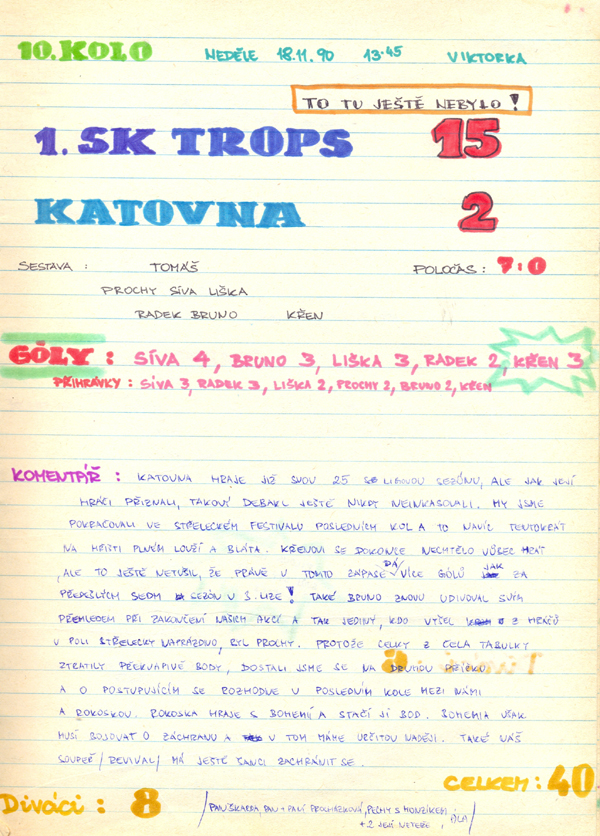 10. KOLO NEDĚLE 18.11.90 13.45 VIKTORKA
TO TU JEŠTĚ NEBYLO!
1. SK TROPS 15
KATOVNA 2
SESTAVA : TOMÁŠ POLOČAS : 7:0
PROCHY SÍVA LIŠKA
RADEK BRUNO KŘEN
GÓLY : SÍVA 4, BRUNO 3, LIŠKA 3, RADEK 2, KŘEN 3
PŘIHRÁVKY : SÍVA 3, RADEK 3, LIŠKA 2, PROCHY 2, BRUNO 2, KŘEN
KOMENTÁŘ : KATOVNA HRAJE JIŽ SVOU 25 LIGOVOU SEZÓNU, ALE JAK JEJÍ
HRÁČI PŘIZNALI, TAKOVÝ DEBAKL JEŠTĚ NIKDY NEINKASOVALI. MY JSME
POKRAČOVALI VE STŘELECKÉM FESTIVALU POSLEDNÍCH KOL A TO NAVÍC TENTOKRÁT
NA HŘIŠTI PLNÉM LOUŽÍ A BLÁTA. KŘENOVI SE DOKONCE NECHTĚLO VŮBEC HRÁT
, ALE TO JEŠTĚ NETUŠIL, ŽE PRÁVĚ V TOMTO ZÁPASE DÁ VÍCE GÓLŮ JAK ZA
PŘEDEŠLÝCH SEDM SEZÓN V 3. LIZE! TAKÉ BRUNO ZNOVU UDIVOVAL SVÝM
PŘEHLEDEM PŘI ZAKONČENÍ NAŠICH AKCÍ A TAK JEDINÝ, KDO VYŠEL Z HRÁČŮ
V POLI STŘELECKY NAPRÁZDNO, BYL PROCHY. PROTOŽE CELKY Z ČELA TABULKY
ZTRATILY PŘEKVAPIVĚ BODY, DOSTALI JSME SE NA DRUHOU PŘÍČKU
A O POSTUPUJÍCÍM SE ROZHODNE V POSLEDNÍM KOLE MEZI NÁMI
A ROKOSKOU. ROKOSKA HRAJE S BOHEMIÍ A STAČÍ JÍ BOD. BOHEMIA VŠAK
MUSÍ BOJOVAT O ZÁCHRANU A V TOM MÁME URČITOU NADĚJI. TAKÉ NÁŠ
SOUPEŘ /REVIVAL/ MÁ JEŠTĚ ŠANCI ZACHRÁNIT SE.
CELKEM : 40
Diváci : 8 /PAN ŠKARDA, PAN + PANÍ PROCHÁZKOVÁ, PECHY S HONZÍKEM,
+ 2 JEJÍ NETEŘE